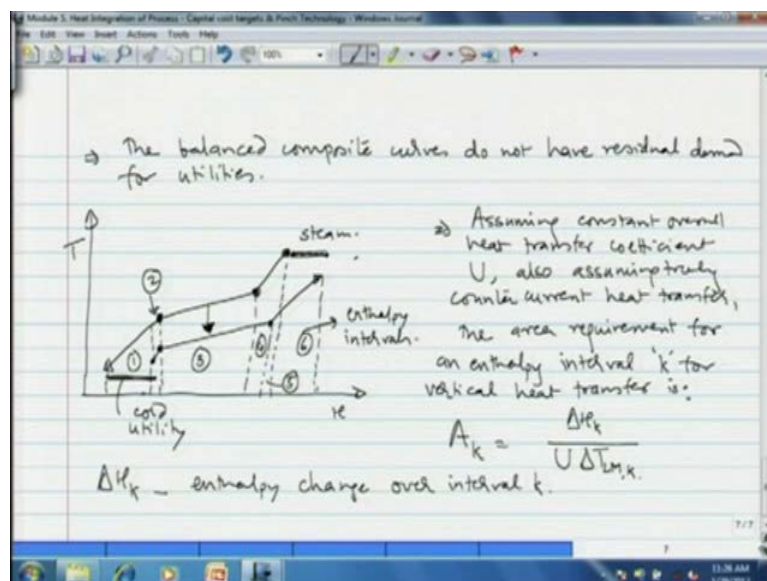 Module 5. Heat Integration of Process - Capital cost targets & Pinch Technology - Windows Journal
File Edit View Insert Actions Tools Help
100%
⇒ The balanced composite curves do not have residual demad
for utilities.
T
steam.
②
①
③
④
⑤
⑥
enthalpy
intervals.
cold
utility
H
⇒ Assuming constant overall
heat transfer coefficient
U, also assuming truely
counter current heat transfer,
The area requirement for
an enthalpy interval 'k' for
vertical heat transfer is:
A_k = ΔH_k / U ΔT_LM,k.
ΔH_k — enthalpy change over interval k.
7/7
7
11:26 AM